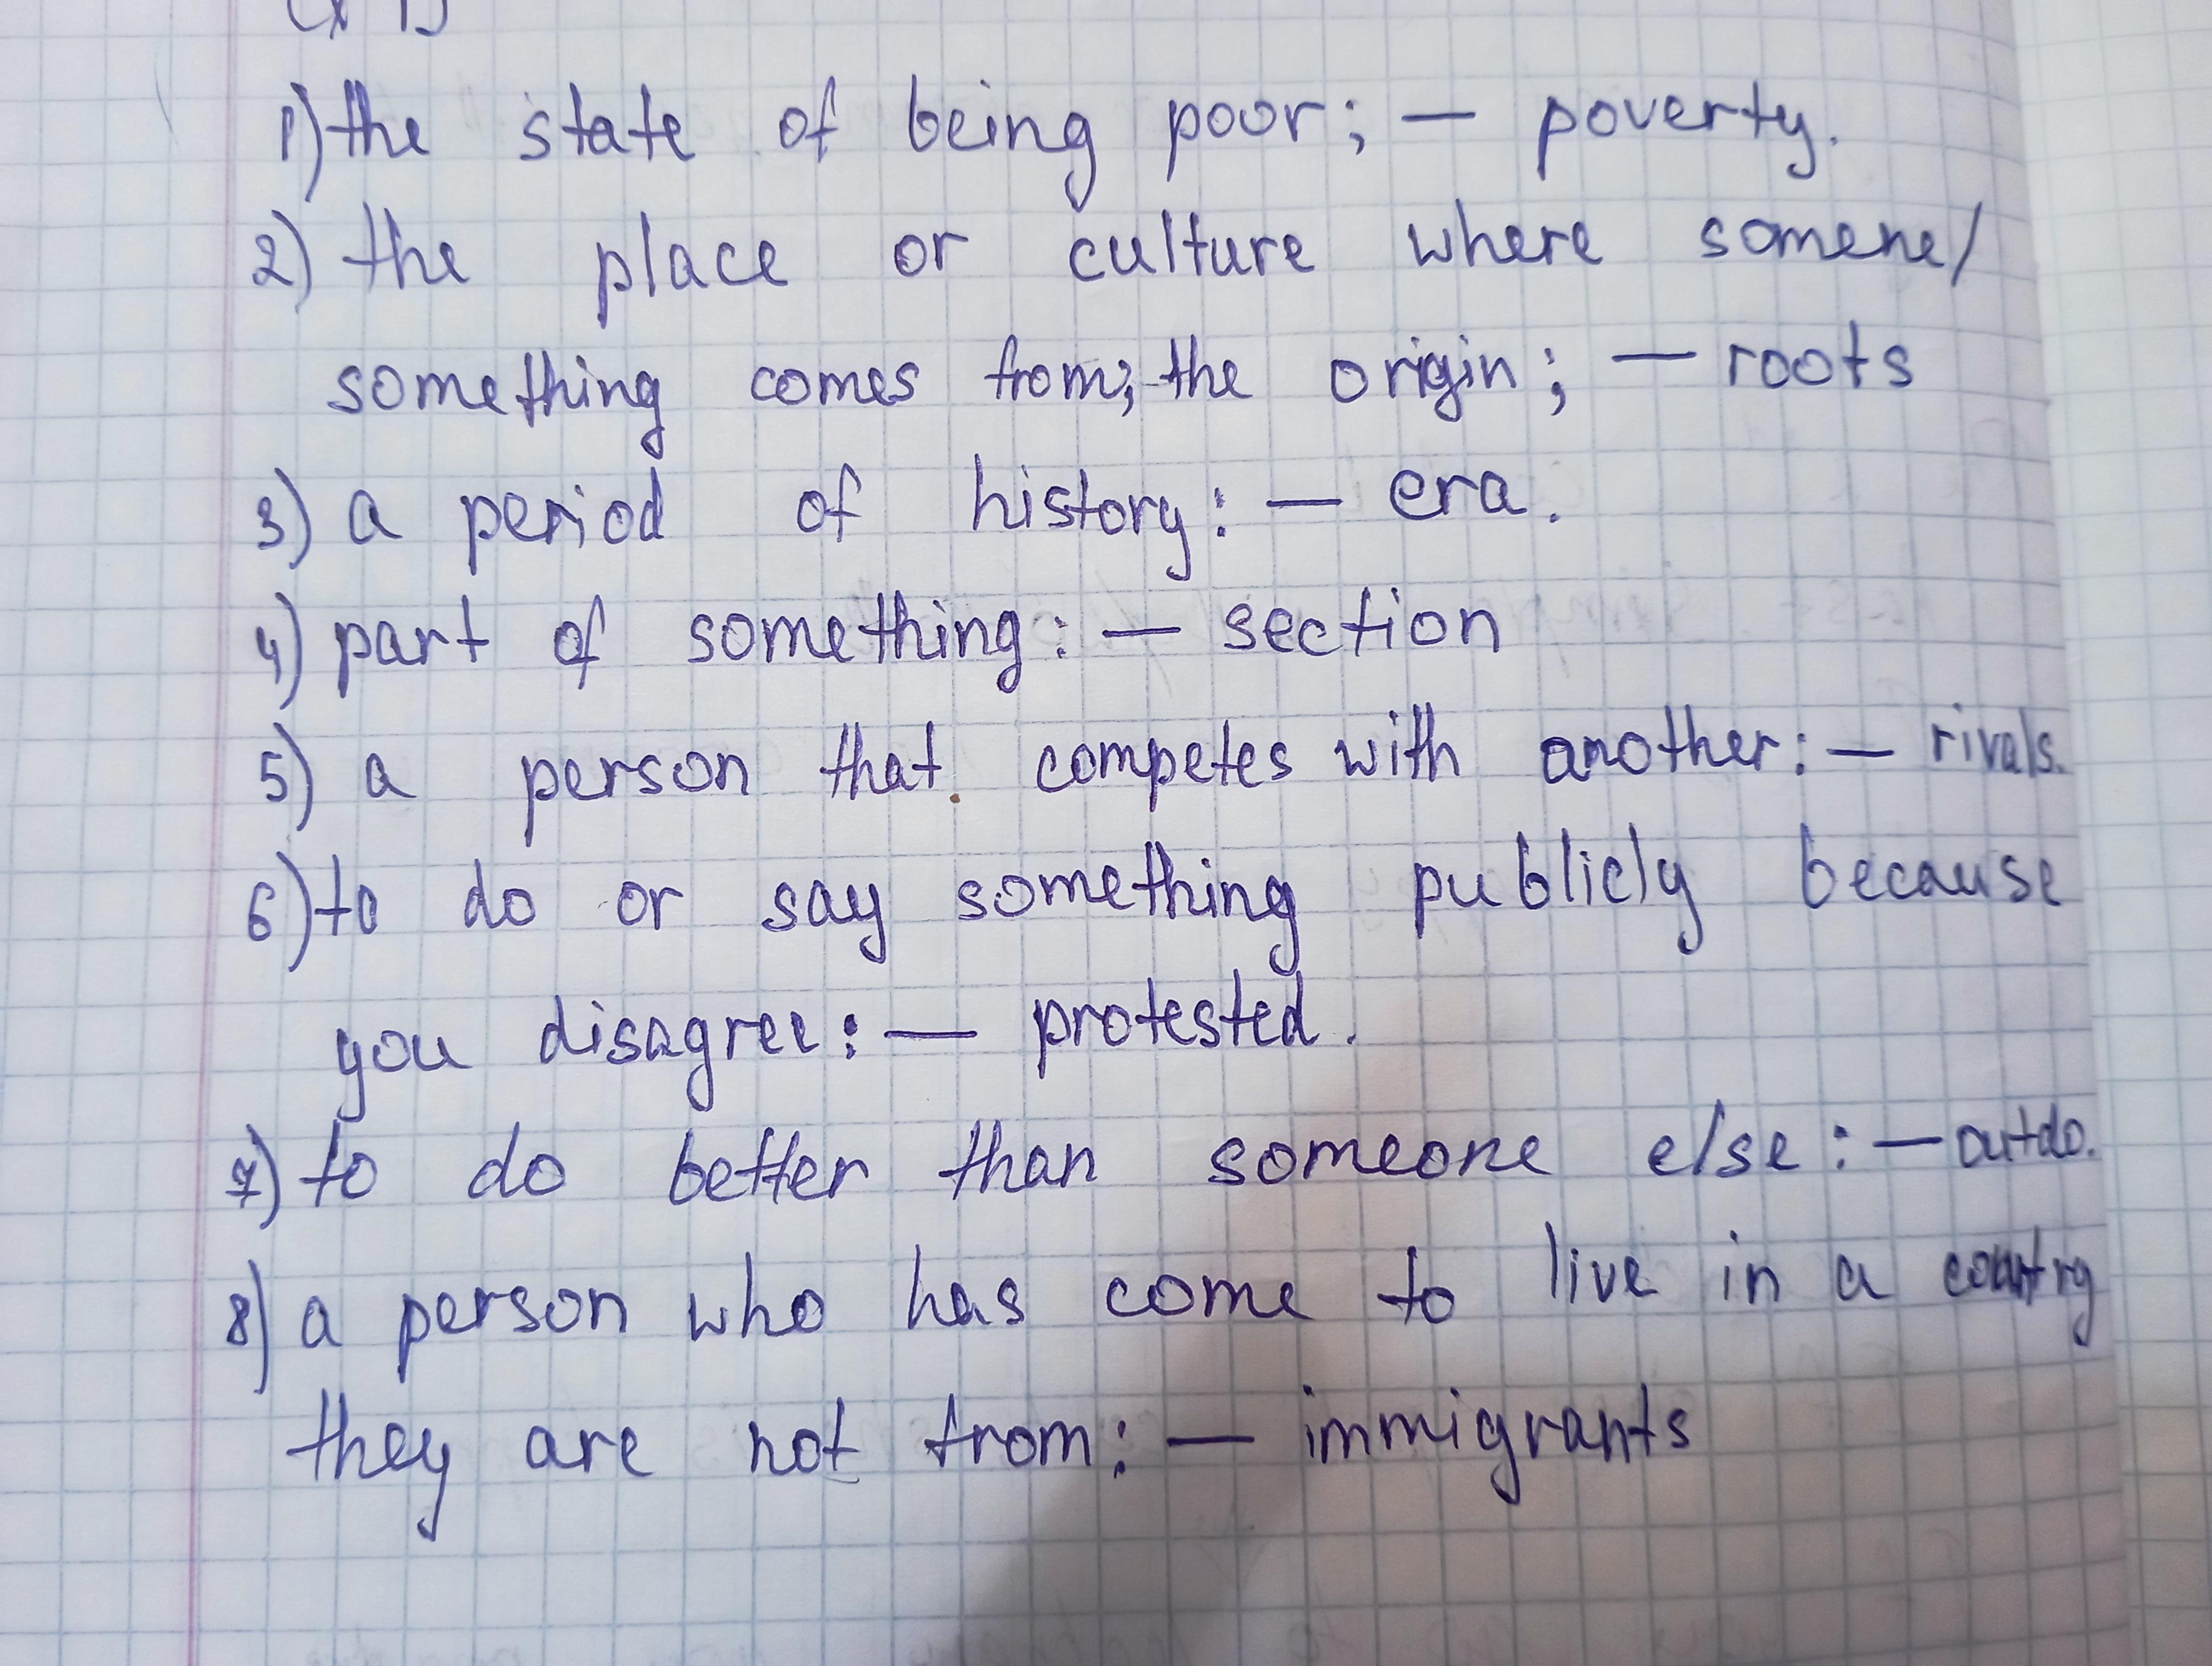 1) the state of being poor; — poverty.
2) the place or culture where somene/
something comes from; the origin; — roots
3) a period of history: — era.
4) part of something: — section
5) a person that competes with another: — rivals.
6) to do or say something publicly because
you disagree: — protested.
7) to do better than someone else: — outdo.
8) a person who has come to live in a country
they are not from: — immigrants